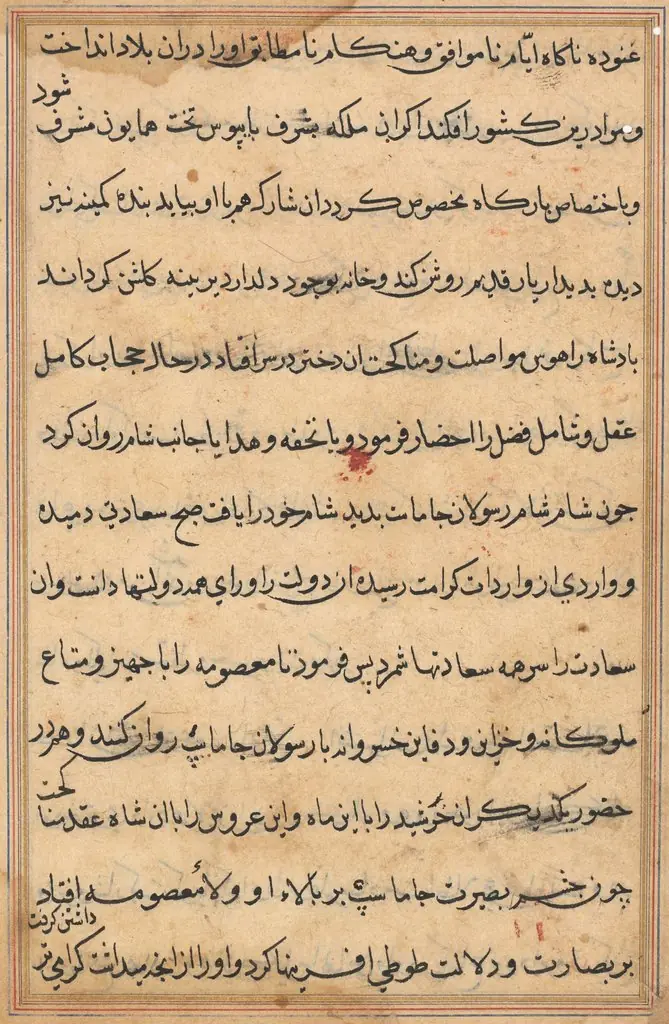 غنوده ناکاه ایّام ناموافق و هنکام نامطابق او را دران بلاد انداخت
و مرا درین کشور افکند اکر ان ملکه بشرف بابیوس تخت همایون مشرف شود
و باختصاص بارکاه مخصوص کردد ان شارک هم با او بیاید بنده کمینه نیز
دیده بدیدار یار قدیم روشن کند و خانه بوجود دلدار دیرینه کلشن کرداند
بادشاه را هوس مواصلت و مناکحت ان دختر در سر افتاد در حال حجاب کامل
عقل و شامل فضل را احضار فرمود و با تحفه و هدایا جانب شام روان کرد
جون شام شام رسولان جاماسب بدید شام خود را یافت صبح سعادتی دمیده
و واردی از واردات کرامت رسیده ان دولت را ورای همه دولتها دانست وان
سعادت را سر همه سعادتها شمرد پس فرمود تا معصومه را با جهیز و متاع
ملوکانه و خزاین و دفاین خسروانه با رسولان جاماسپ روان کنند و هم در
حضور یکدیکر ان خرشید را با این ماه و این عروس را با ان شاه عقد مناکحت
چون چشم بصیرت جاماسپ بر بالاء او و ولاء معصومه افتاد
بر بصارت و دلالت طوطی افرینها کرد و او را از انجه میداشت کرامی تر داشتن کرفت